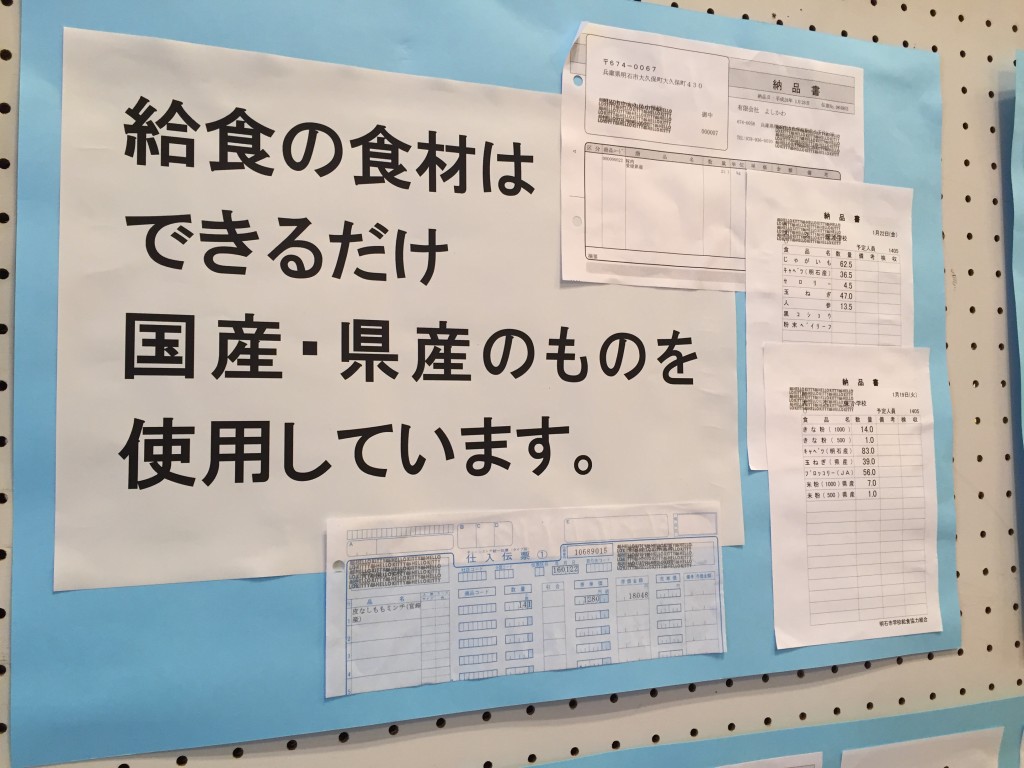 給食の食材は
できるだけ
国産・県産のものを
使用しています。
〒674-0067
兵庫県明石市大久保町大久保町430
御中
000007
納品書
有限会社 よしかわ
納品書
1月22日(金)
予定人員 1405
食品名 数量 備考 検収
じゃがいも 62.5
キャベツ(明石産) 36.5
セロリー 4.5
玉ねぎ 47.0
人参 13.5
黒コショウ
粉末ベイリーフ
納品書
1月19日(火)
予定人員 1405
食品名 数量 備考 検収
きな粉(1000) 14.0
きな粉(500) 1.0
キャベツ(明石産) 83.0
玉ねぎ(県産) 39.0
ブロッコリー(JA) 56.0
米粉(1000)県産 7.0
米粉(500)県産 1.0
明石市学校給食協力組合
仕入伝票①
10689015
160122
品名
商品コード
数量
皮なしももミンチ(宮崎産)
1280
18048